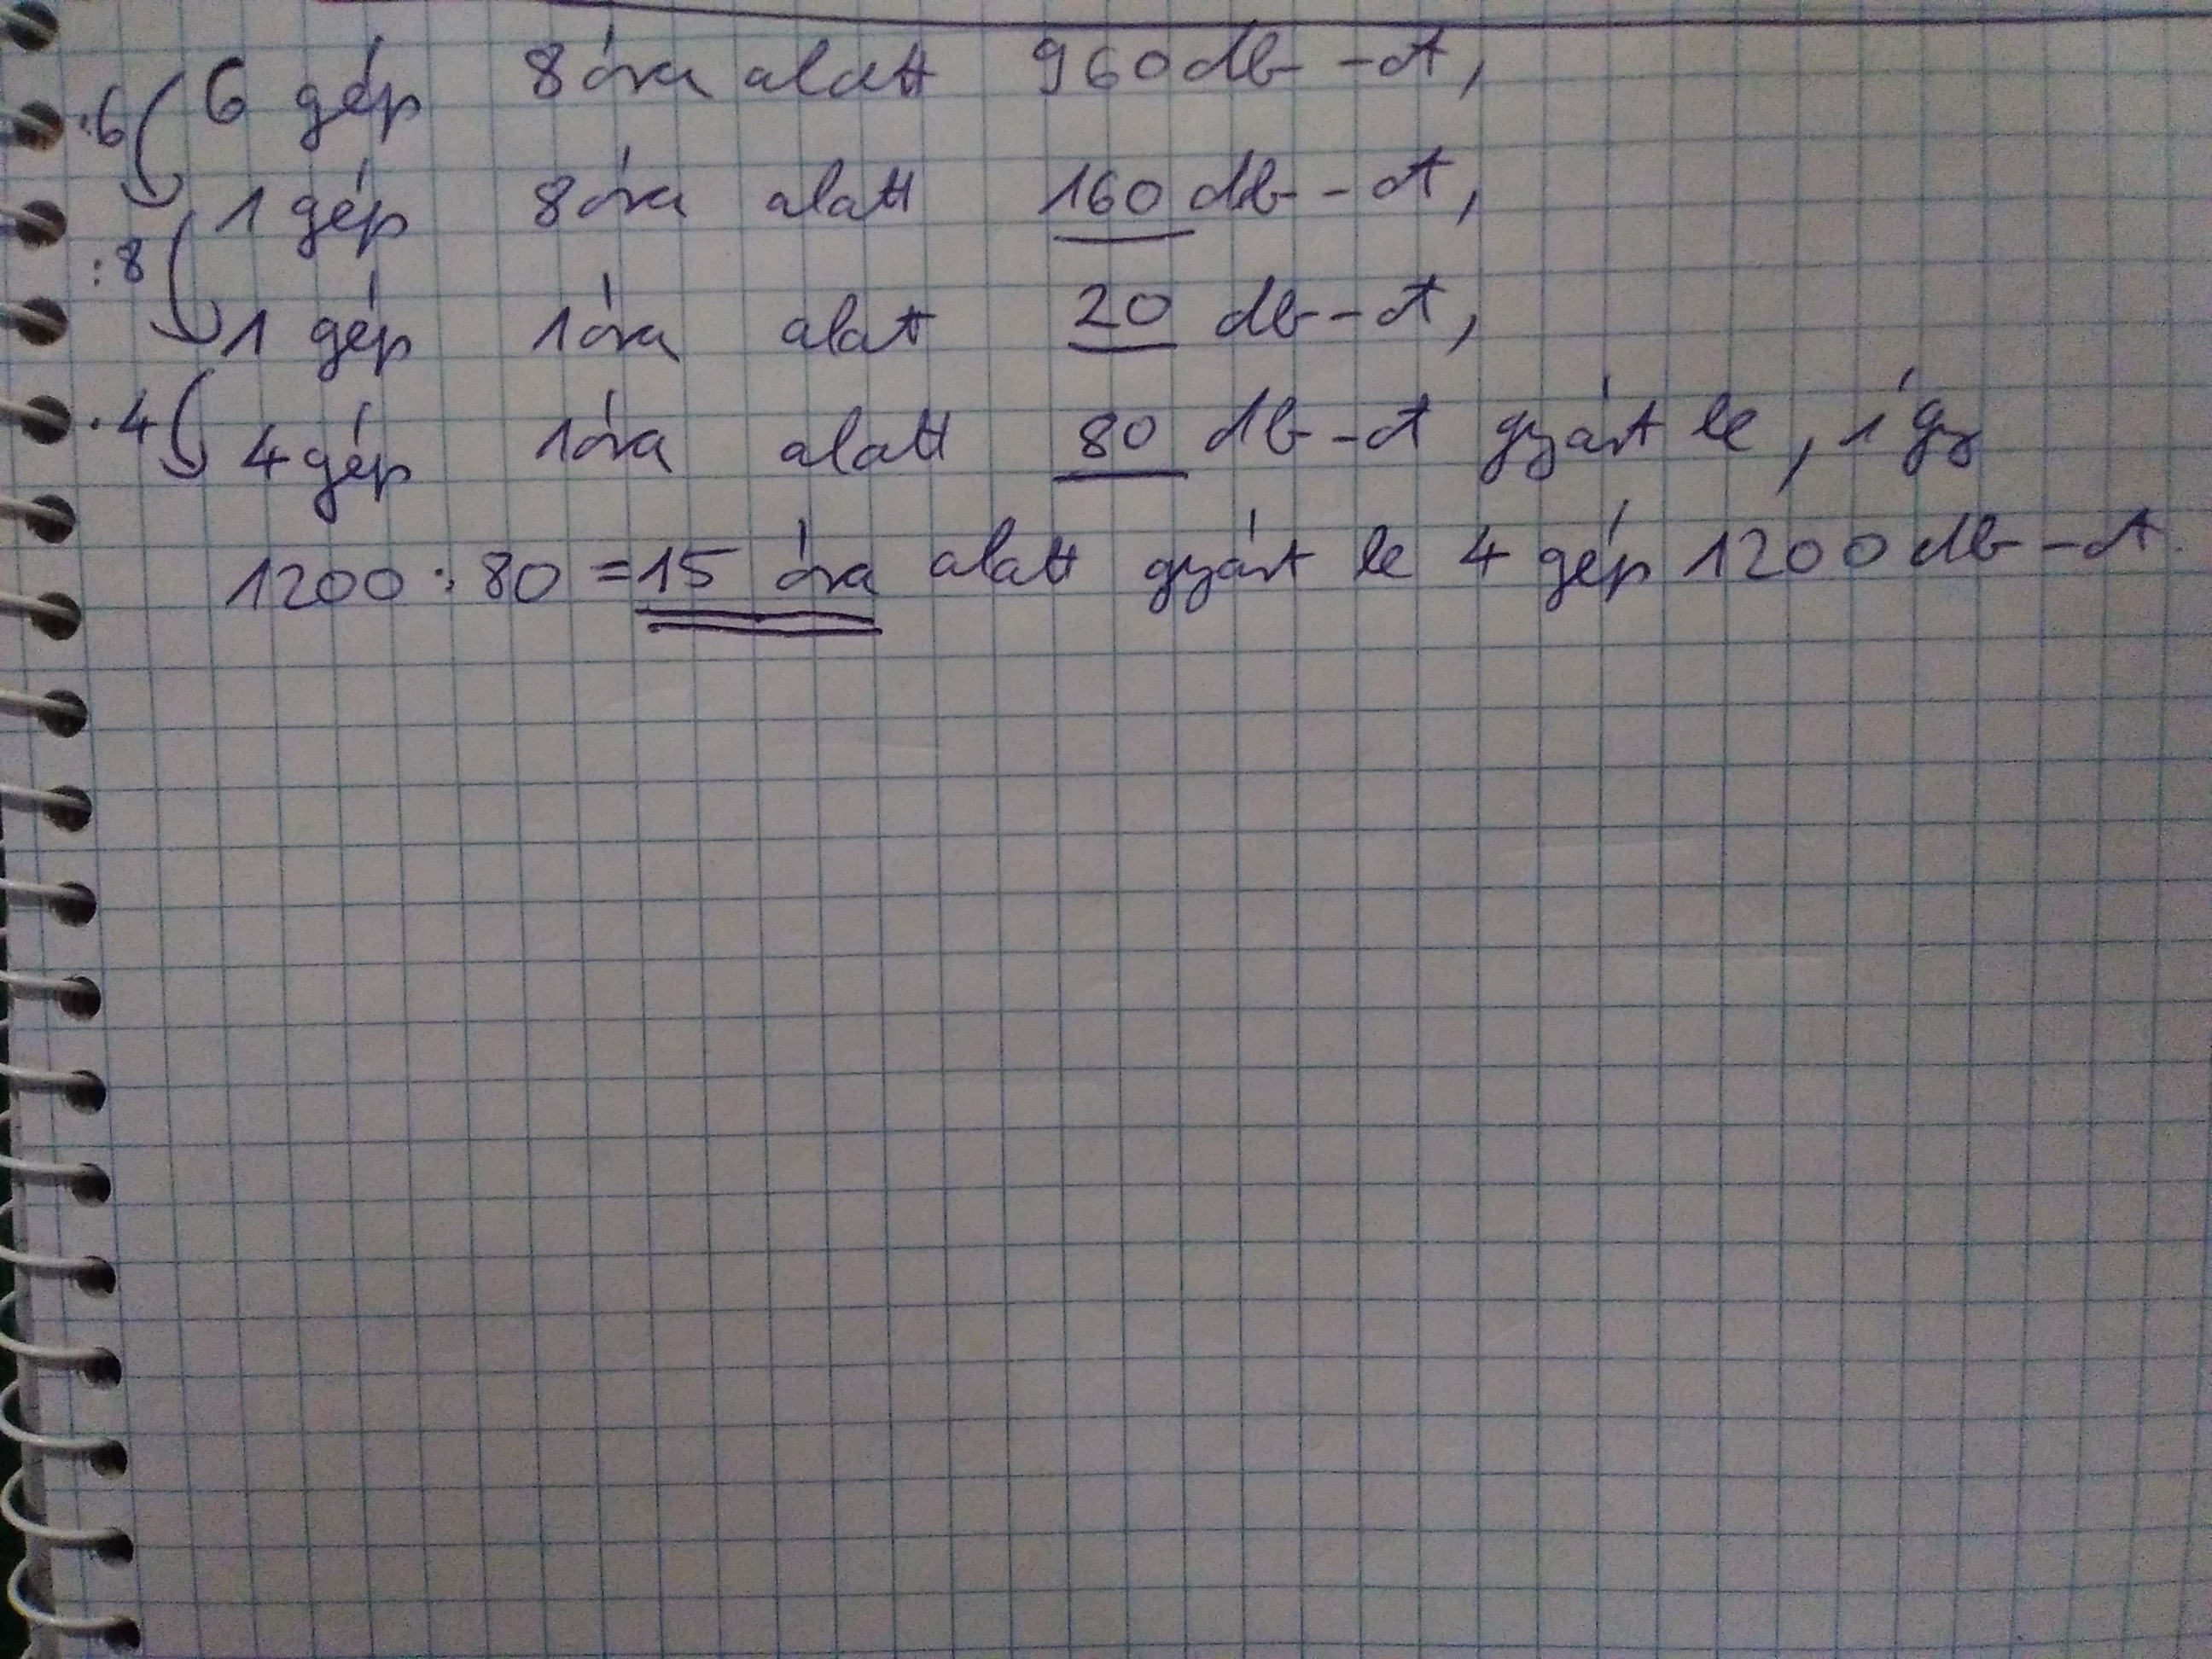 :6 6 gép 8 óra alatt 960 db-ot,
1 gép 8 óra alatt 160 db-ot,
:8 1 gép 1 óra alatt 20 db-ot,
·4 4 gép 1 óra alatt 80 db-ot gyárt le, így
1200 : 80 = 15 óra alatt gyárt le 4 gép 1200 db-ot.